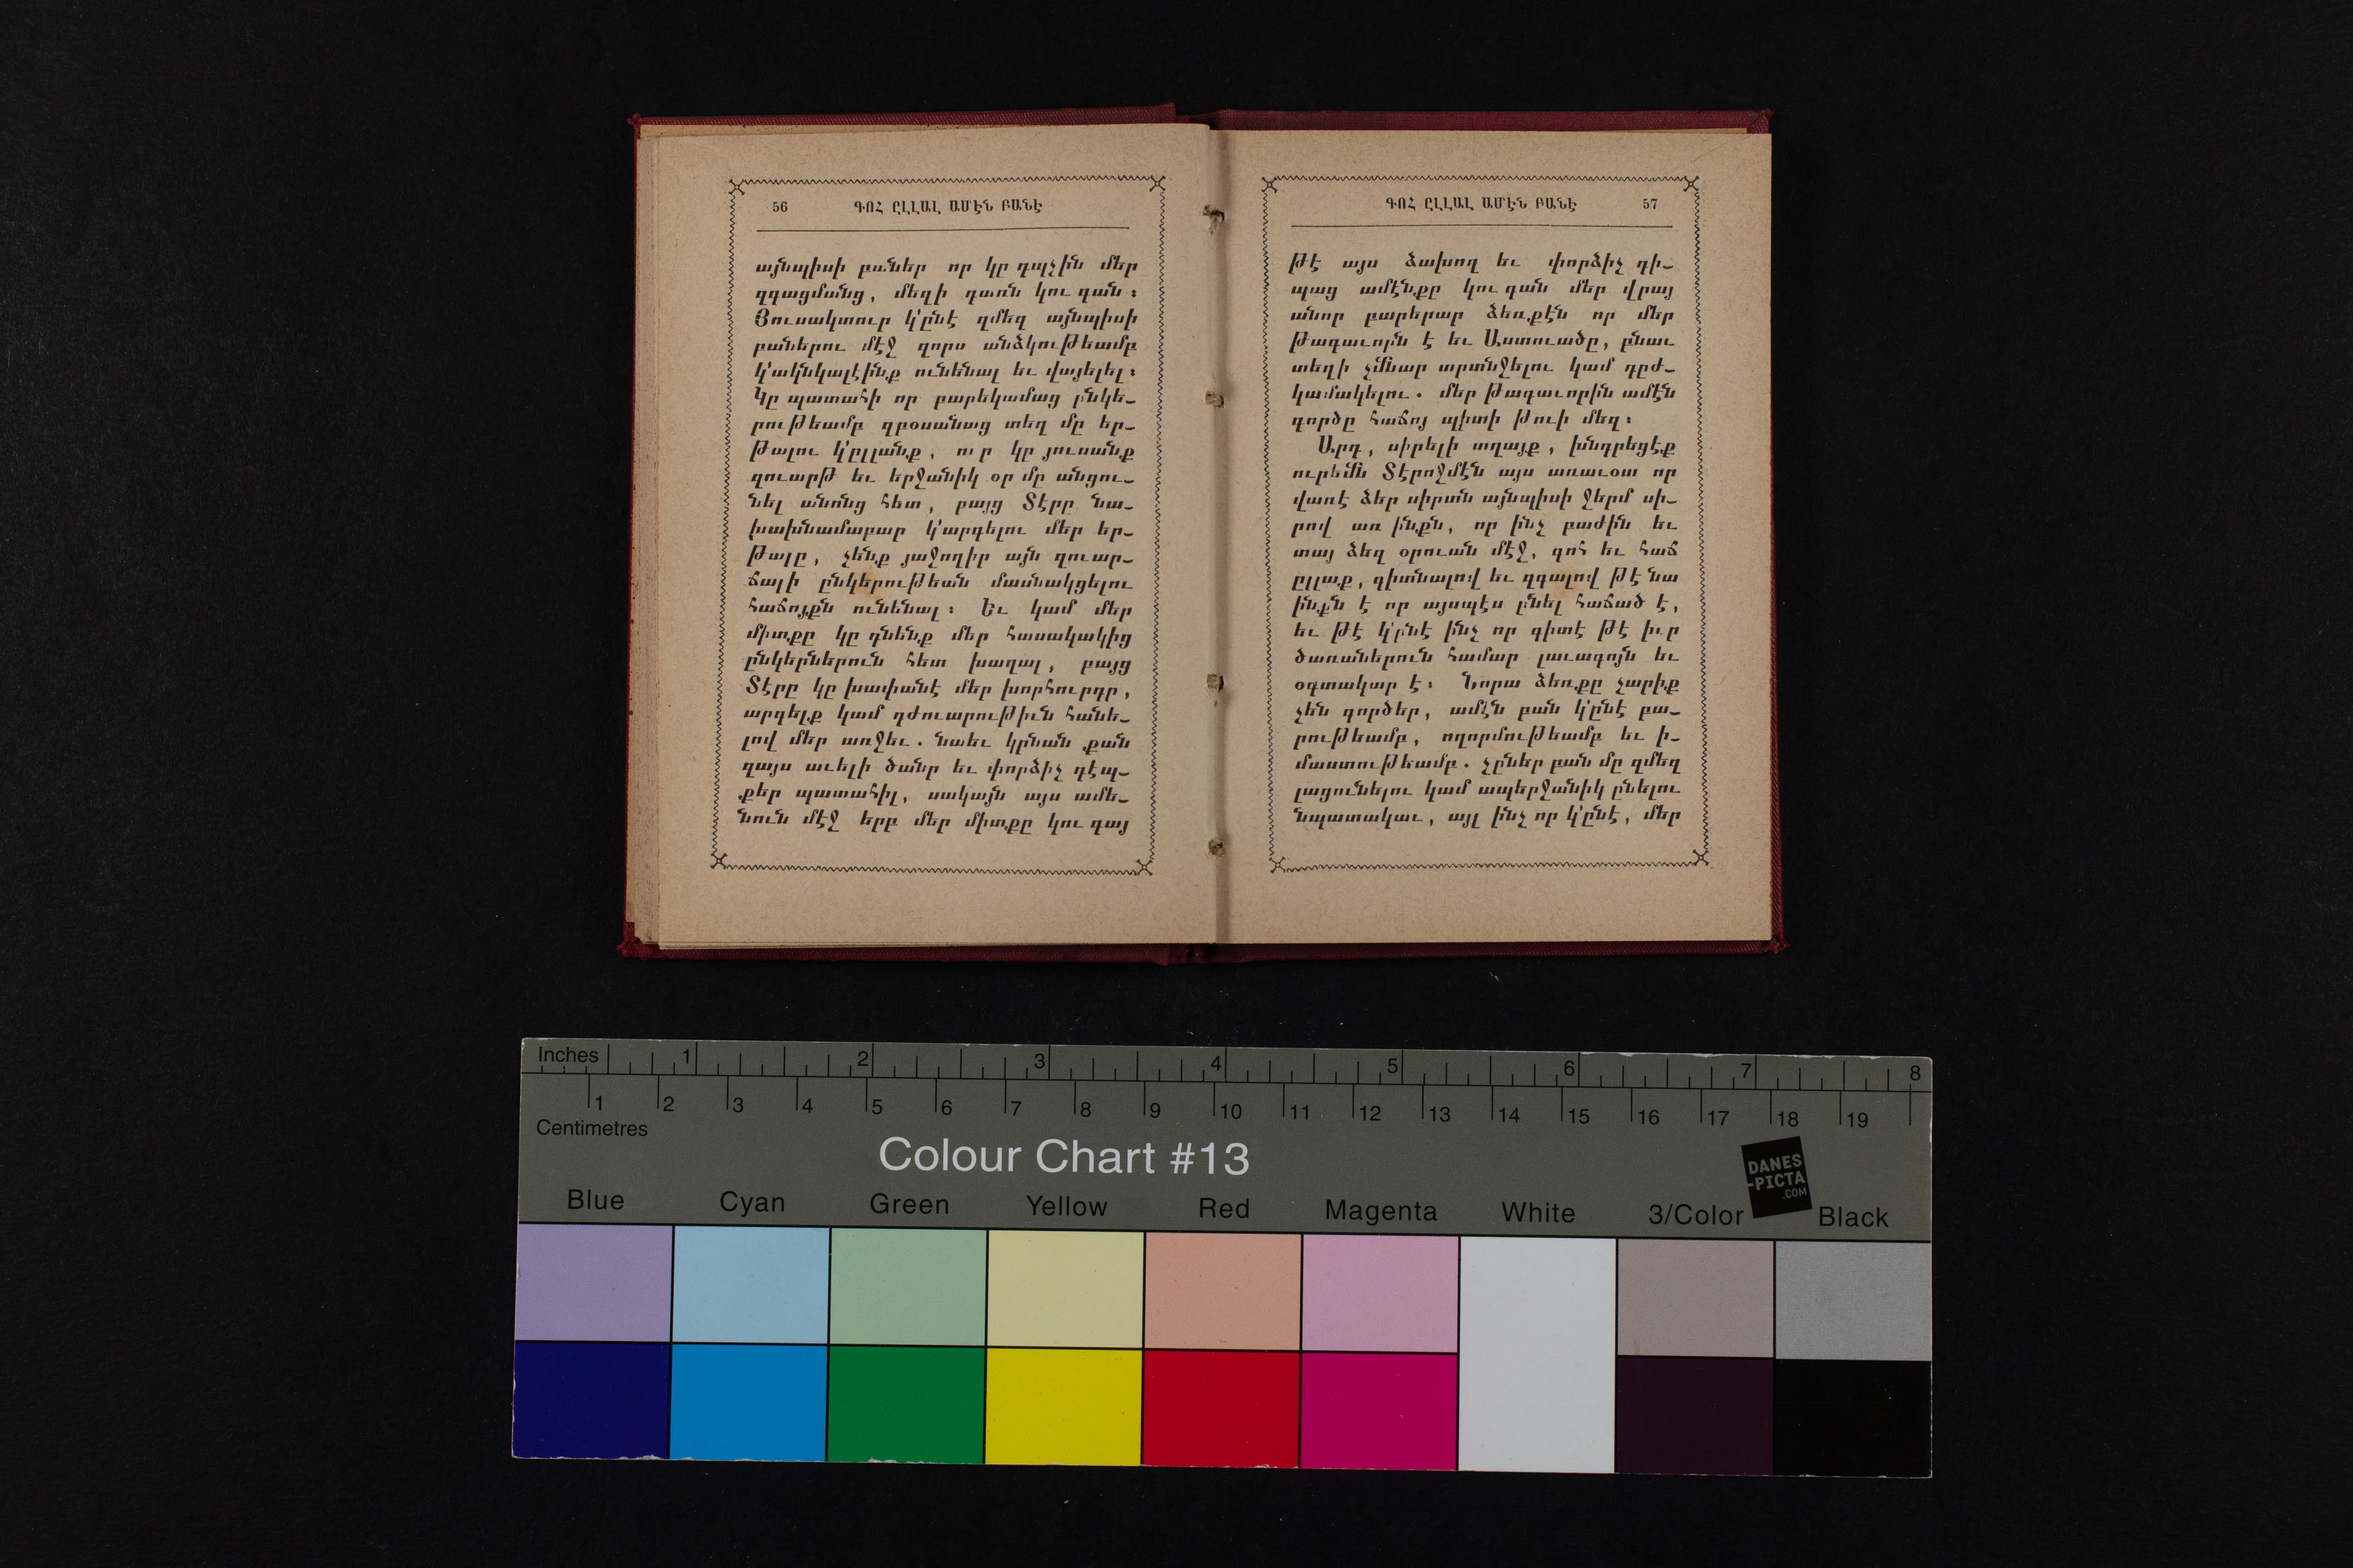 56 ԳՈՀ ԸԼԼԱԼ ԱՄԷՆ ԲԱՆԷ
այնպիսի բաներ որ կը դպչին մեր
զգացմանց, մեզի դառն կու գան։
Յուսակտուր կ՚ընէ զմեզ այնպիսի
բաներու մէջ զորս անձկութեամբ
կ՚ակնկալէինք ունենալ եւ վայելել։
Կը պատահի որ բարեկամաց ընկե֊
րութեամբ զբօսանաց տեղ մը եր֊
թալու կ՚ըլլանք, ուր կը յուսանք
զուարթ եւ երջանիկ օր մը անցու֊
նել անոնց հետ, բայց Տէրը նա֊
խախնամաբար կ՚արգելու մեր եր֊
թալը, չենք յաջողիր այն զուար֊
ճալի ընկերութեան մասնակցելու
հաճոյքն ունենալ։ Եւ կամ մեր
միտքը կը դնենք մեր հասակակից
ընկերներուն հետ խաղալ, բայց
Տէրը կը խափանէ մեր խորհուրդը,
արգելք կամ դժուարութիւն հանե֊
լով մեր առջեւ. նաեւ կրնան քան
զայս աւելի ծանր եւ փորձիչ դէպ֊
քեր պատահիլ, սակայն այս ամե֊
նուն մէջ երբ մեր միտքը կու գայ
ԳՈՀ ԸԼԼԱԼ ԱՄԷՆ ԲԱՆԷ 57
թէ այս ձախող եւ փորձիչ դի֊
պաց ամէնքը կու գան մեր վրայ
անոր բարերար ձեռքէն որ մեր
Թագաւորն է եւ Աստուածը, բնաւ
տեղի չմնար տրտնջելու կամ դըժ֊
կամակելու. մեր թագաւորին ամէն
գործը հաճոյ պիտի թուի մեզ։
Արդ, սիրելի տղայք, խնդրեցէք
ուրեմն Տէրոջմէն այս առաւօտ որ
վառէ ձեր սիրտն այնպիսի ջերմ սի֊
րով առ ինքն, որ ինչ բաժին եւ
տայ ձեզ օրուան մէջ, գոհ եւ հաճ
ըլլաք, գիտնալով եւ զգալով թէ նա
ինքն է որ այսպէս ընել հաճած է,
եւ թէ կ՚ընէ ինչ որ գիտէ թէ իւր
ծառաներուն համար լաւագոյն եւ
օգտակար է։ Նորա ձեռքը չարիք
չեն գործեր, ամէն բան կ՚ընէ բա֊
րութեամբ, ողորմութեամբ եւ ի֊
մաստութեամբ. չըներ բան մը զմեզ
լացունելու կամ ապերջանիկ ընելու
նպատակաւ, այլ ինչ որ կ՚ընէ, մեր
Inches 1 2 3 4 5 6 7 8
1 2 3 4 5 6 7 8 9 10 11 12 13 14 15 16 17 18 19
Centimetres
Colour Chart #13
DANES
-PICTA
.COM
Blue Cyan Green Yellow Red Magenta White 3/Color Black